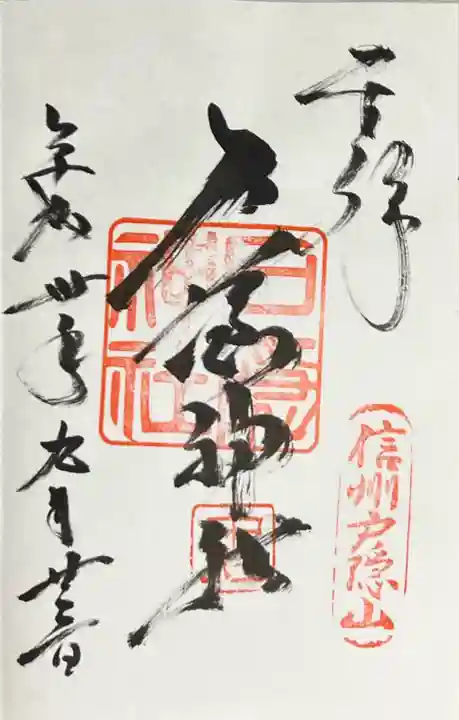 奉拝
信州戸隠山
戸隠神社
平成卅年九月廿三日